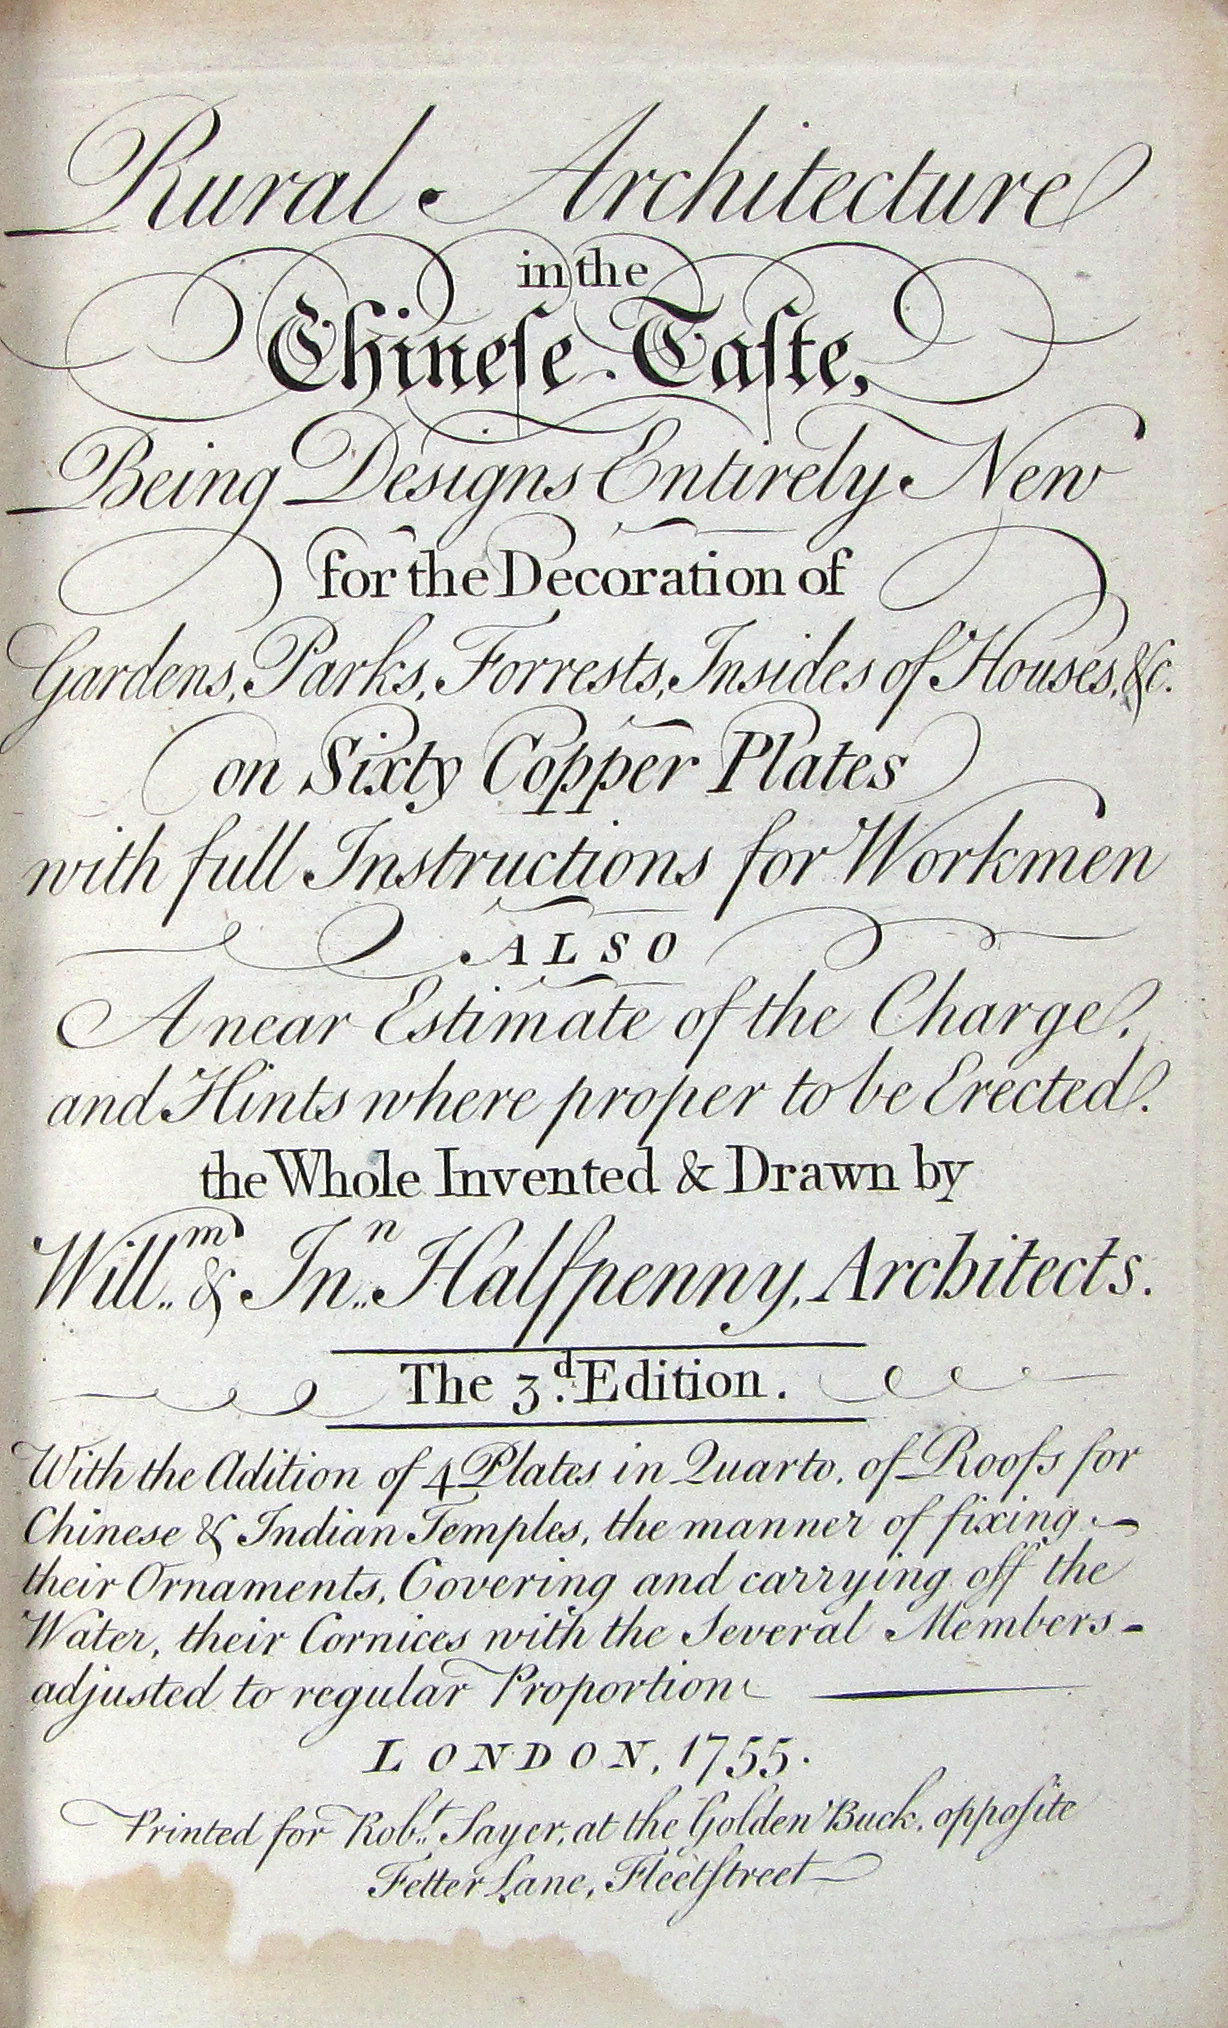 Rural Architecture
in the
Chineſe Taſte,
Being Designs Entirely New
for the Decoration of
Gardens, Parks, Forrests, Insides of Houses, &c.
on Sixty Copper Plates
with full Instructions for Workmen
ALSO
A near Estimate of the Charge,
and Hints where proper to be Erected.
the Whole Invented & Drawn by
Will.m & Jn.n Halfpenny, Architects.
The 3.d Edition.
With the Adition of 4 Plates in Quarto, of Roofs for
Chinese & Indian Temples, the manner of fixing
their Ornaments, Covering and carrying off the
Water, their Cornices with the Several Members
adjusted to regular Proportion
LONDON, 1755.
Printed for Rob.t Sayer, at the Golden Buck, oppoſite
Fetter Lane, Fleetſtreet